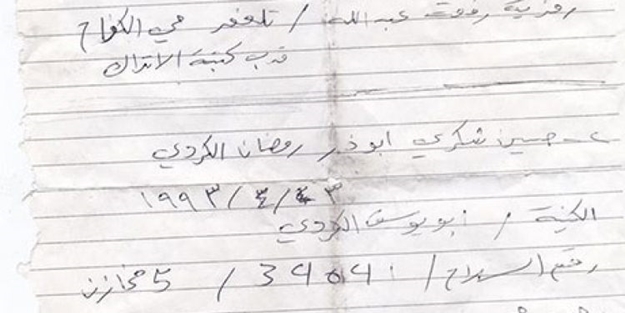 رمزية رفعت عبدالله / تلعفر حي الكفاح
قرب كتبة الاتراك
٢- حسين شكري ابوذر رمضان الكردي
٣/٤/١٩٩٣
الكنية / ابو يوسف الكردي
رقم السلاح / / 5 مخازن